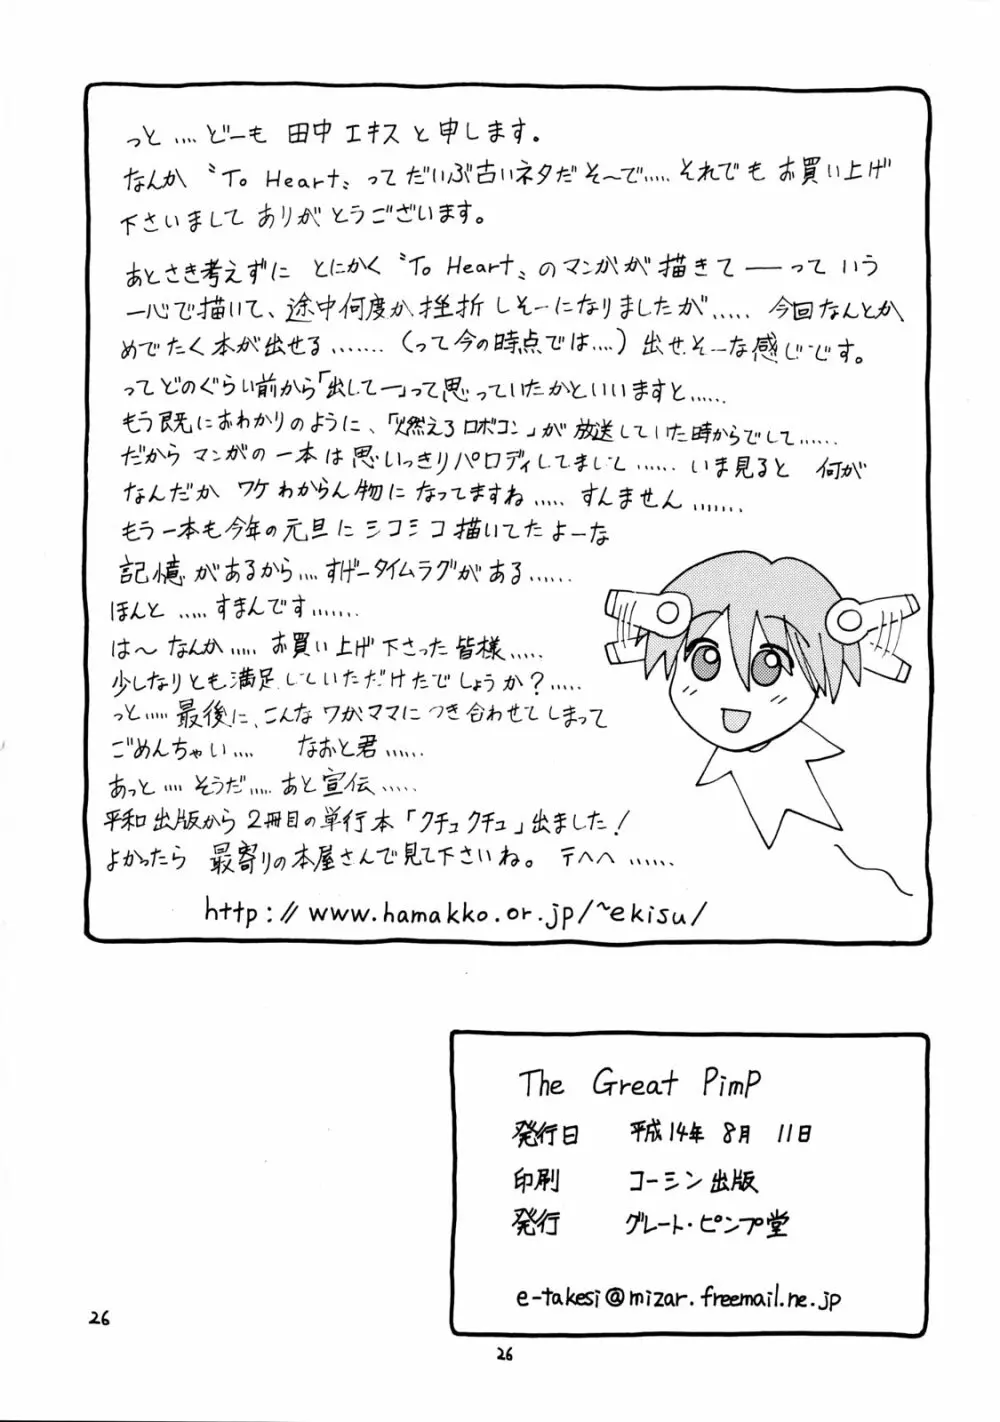 っと....どーも 田中エキスと申します。
なんか〝To Heart〟ってだいぶ古いネタだそ〜で.....それでも お買い上げ
下さいまして ありがとうございます。
あとさき考えずに とにかく〝To Heart〟のマンガが描きて――って いう
一心で描いて、途中何度か挫折しそーになりましたが..... 今回なんとか
めでたく本が出せる.......(って今の時点では....)出せそーな感じです。
ってどのぐらい前から「出してー」って思っていたかといいますと......
もう既におわかりのように、「燃えろロボコン」が放送していた時からでして......
だから マンガの一本は思いっきりパロディしてまして...... いま見ると 何が
なんだか ワケわからん物になってますね..... すんません.......
もう一本も今年の元旦にシコシコ描いてたよーな
記憶があるから....すげータイムラグがある......
ほんと .....すまんです.......
は〜なんか..... お買い上げ下さった皆様.....
少しなりとも満足していただけたでしょうか?.....
っと.....最後に、こんなワガママにつき合わせてしまって
ごめんちゃい.... なおと君......
あっと....そうだ.....あと宣伝.....
平和出版から2冊目の単行本「クチュクチュ」出ました!
よかったら 最寄りの本屋さんで見て下さいね。テヘヘ......
http://www.hamakko.or.jp/~ekisu/
The Great Pimp
発行日 平成14年 8月 11日
印刷 コーシン出版
発行 グレート・ピンプ堂
e-takesi@mizar.freemail.ne.jp
26
26